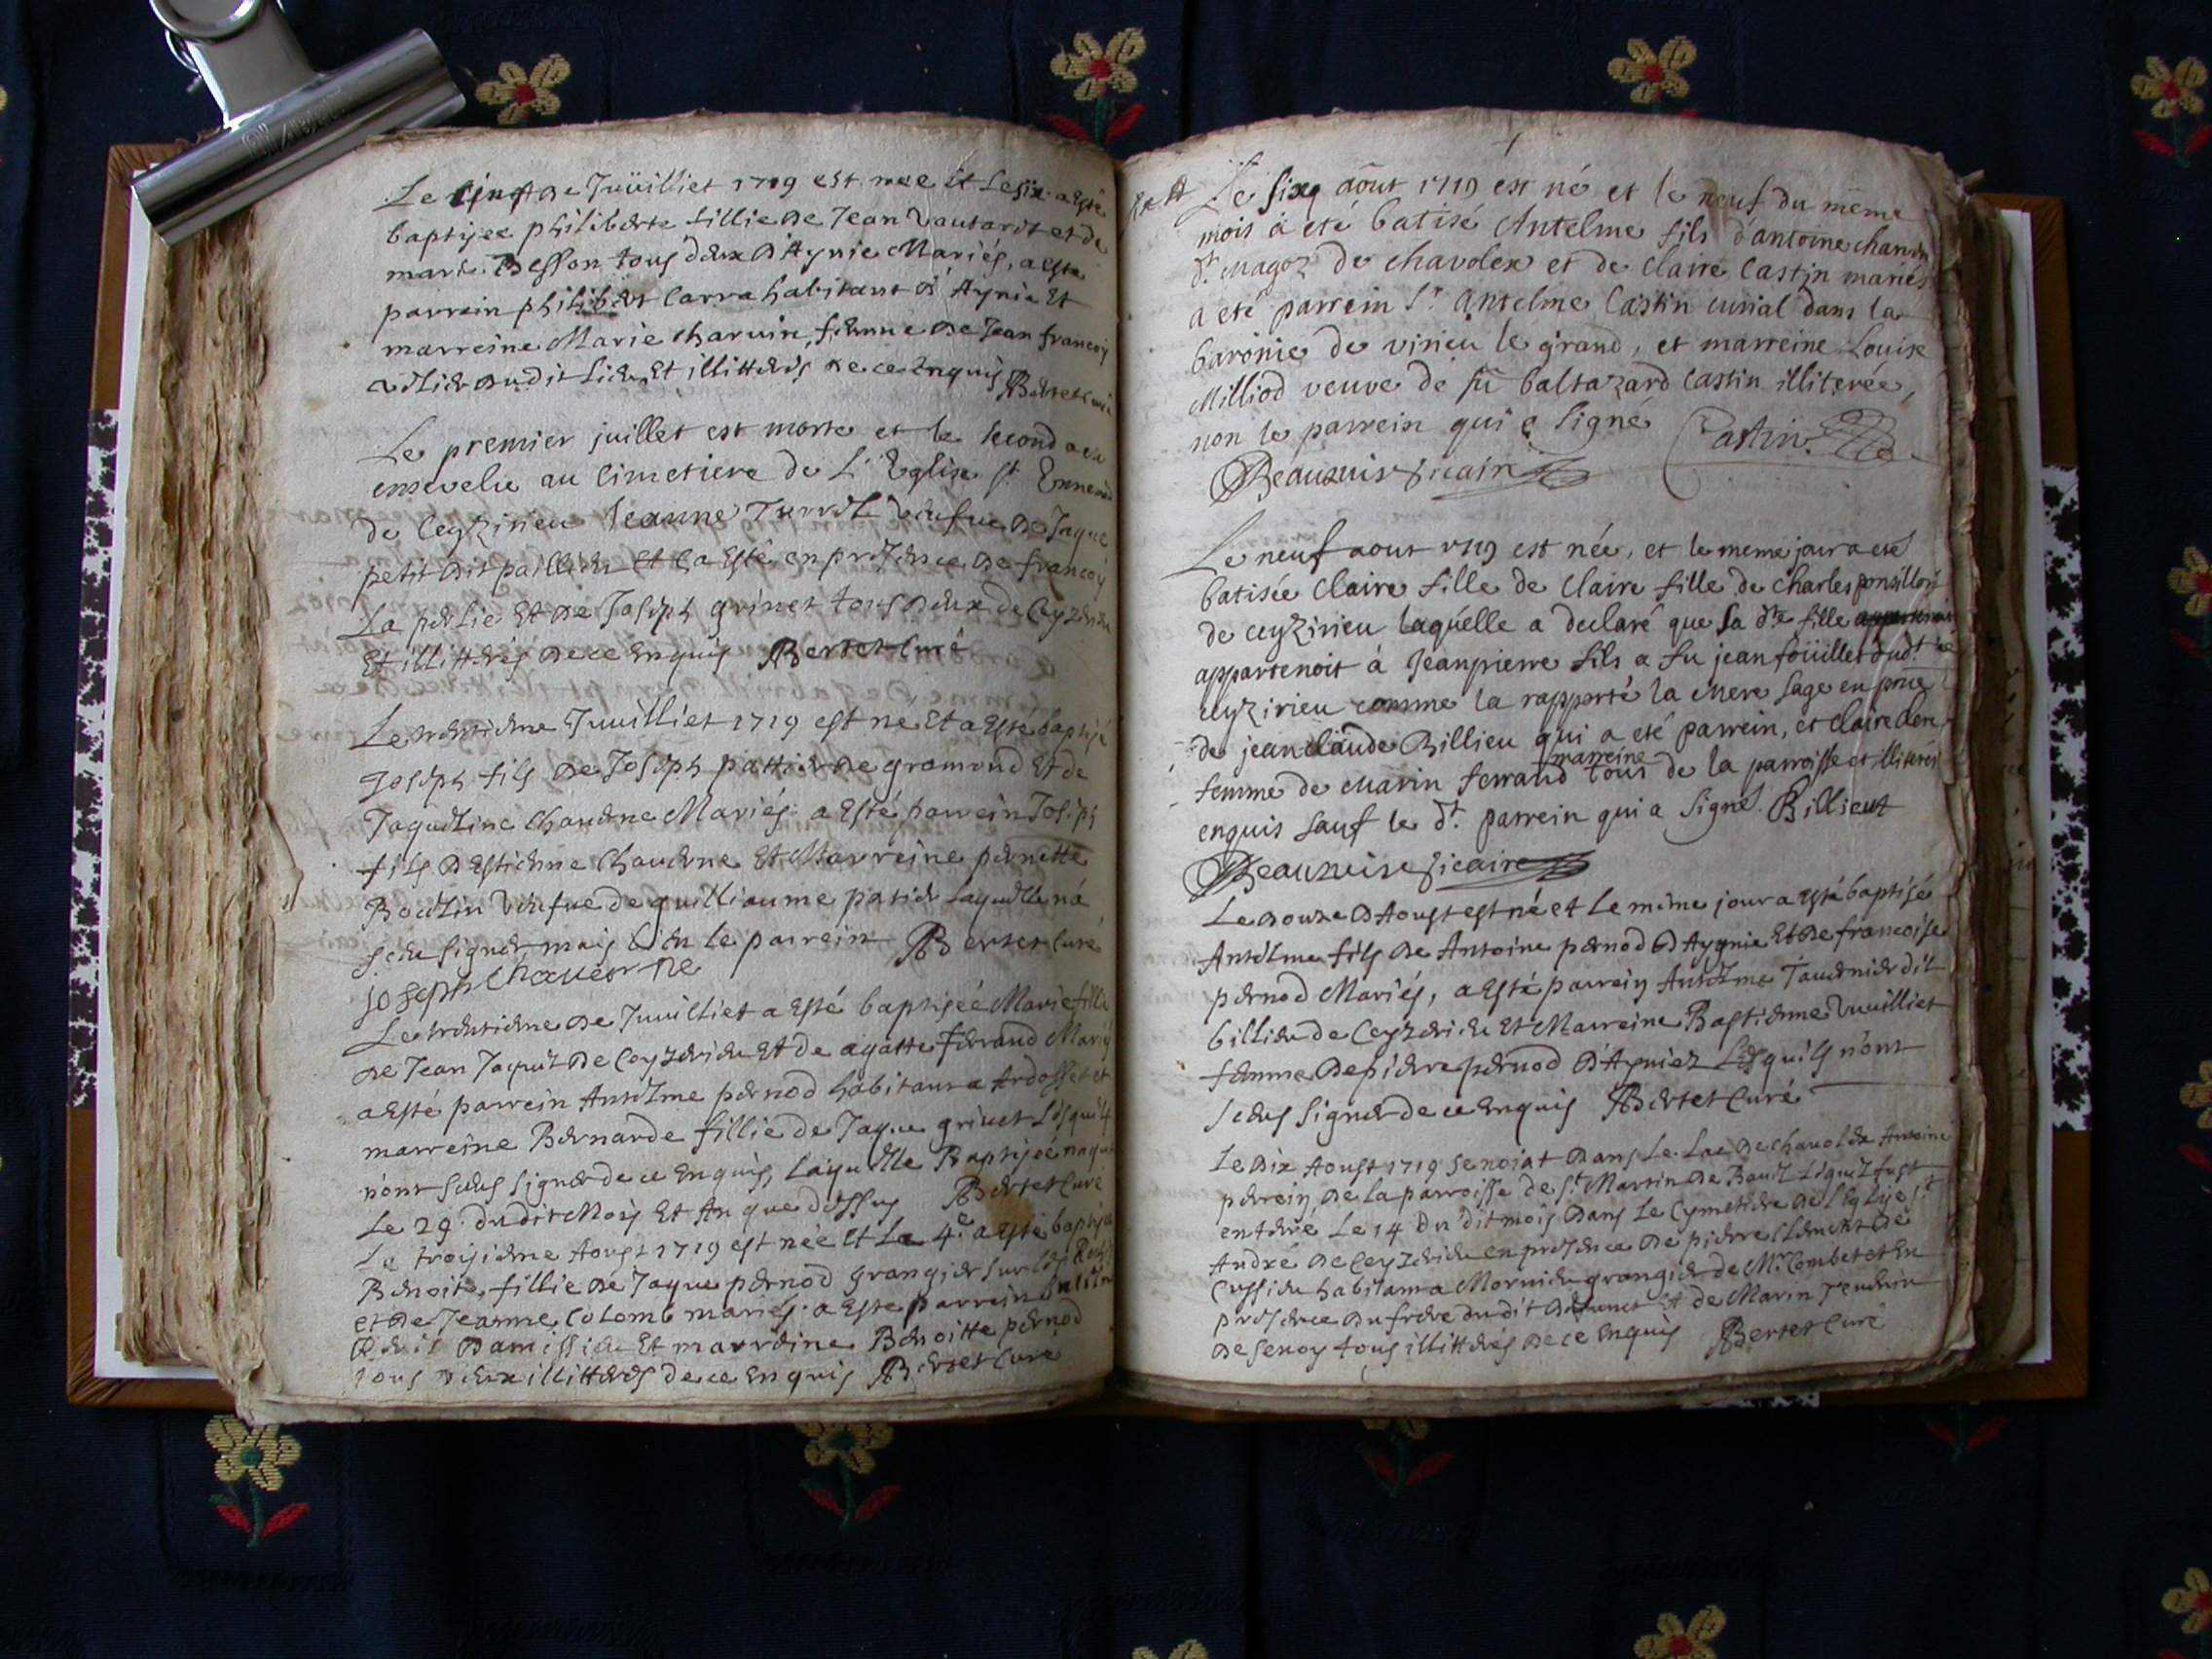 Le cinq de Juüilliet 1719 est nee et Le six a esté
baptisee philiberte fillie de Jean Vautaret et de
marie Besson tous deux d'Aynie Mariés, a esté
parrein philibert Carra habitant a Aynie Et
marreine Marie charvin, femme de Jean francoy
dudit Lieu Et illitterés de ce Enquis Bertet curé
Le premier juillet est morte et le second a eté
ensevelie au Cimetiere de L'Eglise St
de Ceyzirieu Jeanne Veufue de Jaque
petit dit paillier Et ca Esté en presence de francoy
La perlie Et de Joseph grinet tous deux de Ceyzerieu
Et illitterés de ce Enquis Bertet Curé
Le Juuilliet 1719 est né Et a Esté baptisé
Joseph fils de Joseph pattier de gramond Et de
Jaqueline Chauerne Mariés a Esté parrein Joseph
fils d'Estienne Chauerne Et Marreine pernette
Veufue de guilliaume patier Laquelle n'a
sceu signer mais bien le parrein Bertet Curé
joseph chaverne
Le de Juuilliet a Esté baptiseé Marie fille
de Jean Jaquet de Ceyzerieu Et de agatte Ferrand Mariés
a Esté parrein Antelme pernod habitant a Ardosset et
marreine Bernarde fillie de Jaque grinet Lesquels
n'ont sceus signer de ce Enquis, Laquelle Baptiseé naquit
Le 29. dudit Mois Et An que dessus Bertet Curé
Le troisieme Aoust 1719 est neé Et Le 4.e a esté baptisee
Benoite fillie de Jaque pernod grangier sur les
et de Jeanne Colomb mariés. a Esté parrein
d'amissieu Et marreine Benoitte pernod
tous deux illitterés de ce Enquis Bertet Curé
Le sixq aôut 1719 est né et le neuf du même
mois a eté batisé Antelme fils d'antoine
dt. Magoz de chavolex et de Claire Castin mariés
a eté parrein Sr. antelme Castin curial dans la
baronie de virieu le grand, et marreine Louise
Milliod veuve de fû baltazard Castin illiterée,
non le parrein qui a signé Castin
Beauuis Vicaire
Le neuf aout 1719 est née, et le meme jour a eté
batisée Claire fille de Claire fille de Charles ponsillon
de ceyzirieu laquélle a declaré que sa dte fille
appartenoit à Jeanpierre fils a fu jean foüillet dudt
ceyzirieu comme la rapporté la mere sage en
de jeanclaude Billieu qui a eté parrein, et Claire
marreine
femme de Marin ferrand tous de la parroisse et illiterés
enquis sauf le dt. parrein qui a signé. Billieut
Beauuis Vicaire
Le douze d'Aoust est né et Le même jour a esté baptisé
Antelme fils de Antoine pernod d'Aygnie Et de francoise
pernod Mariés, a Esté parrein Antelme Tauernier dit
billieu de Ceyzerieu Et Marreine Bastienne Vuuilliet
femme de pierre pernod d'Aynies Lesquels n'ont
sceus signer de ce Enquis Bertet Curé
Le dix Aoust 1719 se noiat dans Le Lac de chauolex Antoine
perrein, de la parroisse de St. Martin de Bauel Lequel fust
enterré Le 14 du dit mois dans Le Cymetiere de l'Eglise St.
André de Ceyzerieu en presence de pierre Clement de
Cussieu habitant a Mornieu grangier de Mr. Combet et En
presence du frere dudit defunct Et de Marin Tendrin
de Senoy tous illitterés de ce Enquis Bertet Curé